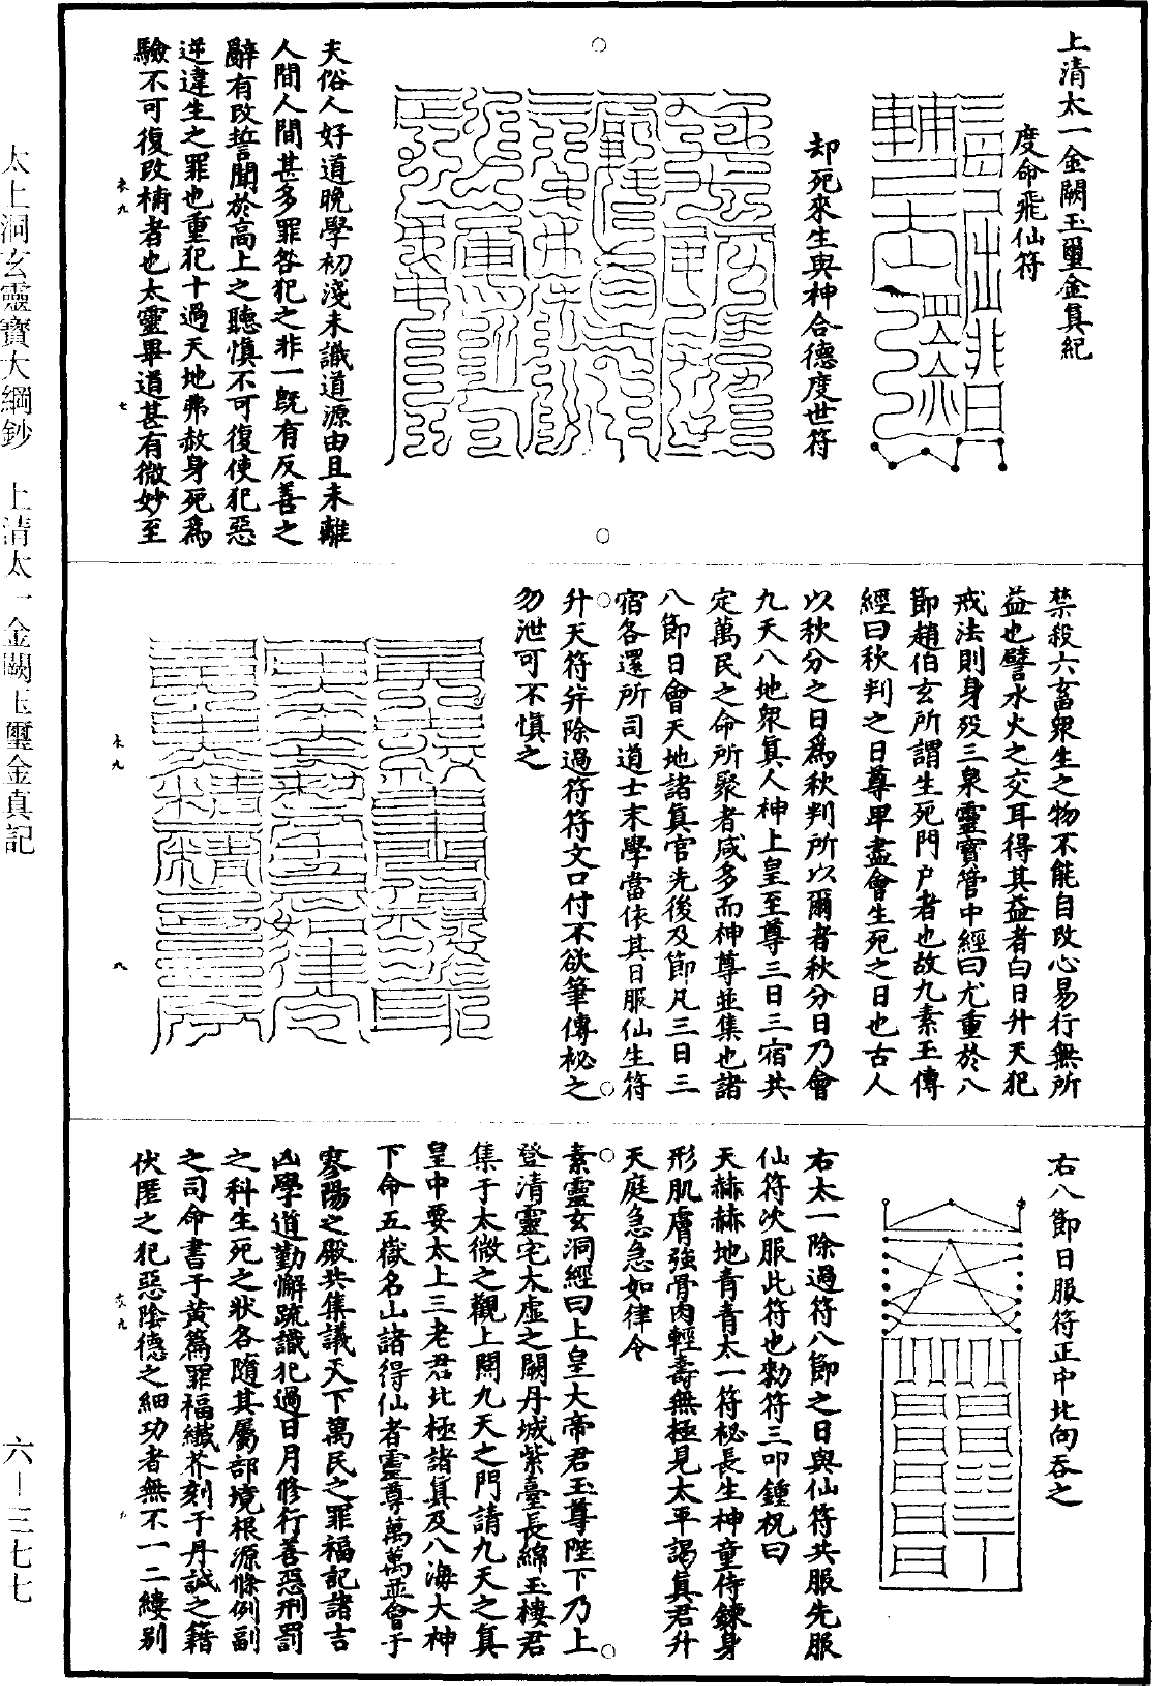 上清太一金闕玉璽金真紀
度命飛仙符
却死來生與神合德度世符
夫俗人好道晚學初淺未識道源由且未離
人間人間甚多罪咎犯之非一既有反善之
辭有改誓聞於高上之聽慎不可復使犯惡
逆違生之罪也重犯十過天地弗赦身死為
驗不可復改補者也太靈畢道甚有微妙至
禁殺六畜衆生之物不能自改心易行無所
益也譬水火之交耳得其益者白日升天犯
戒法則身殁三泉靈寶管中經曰尤重於八
節趙伯玄所謂生死門户者也故九素玉傳
經曰秋判之日尊卑盡會生死之日也古人
以秋分之日為秋判所以爾者秋分日乃會
九天八地衆真人神上皇至尊三日三宿共
定萬民之命所聚者咸多而神尊並集也諸
八節日會天地諸真官先後及節凡三日三
宿各還所司道士末學當依其日服仙生符
升天符并除過符符文口付不欲筆傳秘之
勿泄可不慎之
右八節日服符正中北向吞之
右太一除過符八節之日與仙符共服先服
仙符次服此符也勑符三叩鍾祝曰
天赫赫地青青太一符秘長生神童侍鍊身
形肌膚強骨肉輕壽無極見太平謁真君升
天庭急急如律令
素靈玄洞經曰上皇大帝君玉尊陛下乃上
登清靈宅太虛之闕丹城紫臺長綿玉樓君
集于太微之觀上開九天之門請九天之真
皇中要太上三老君北極諸真及八海大神
下命五嶽名山諸得仙者靈尊萬萬並會于
寥陽之殿共集議天下萬民之罪福記諸吉
凶學道勤懈疏識犯過日月修行善惡刑罰
之科生死之狀各隨其屬部境根源條例副
之司命書于黃篇罪福纖芥刻于丹誠之籍
伏匿之犯惡陰德之細功者無不一二縷别
太上洞玄靈寶大綱鈔　上清太一金闕玉璽金真記
六—三七七